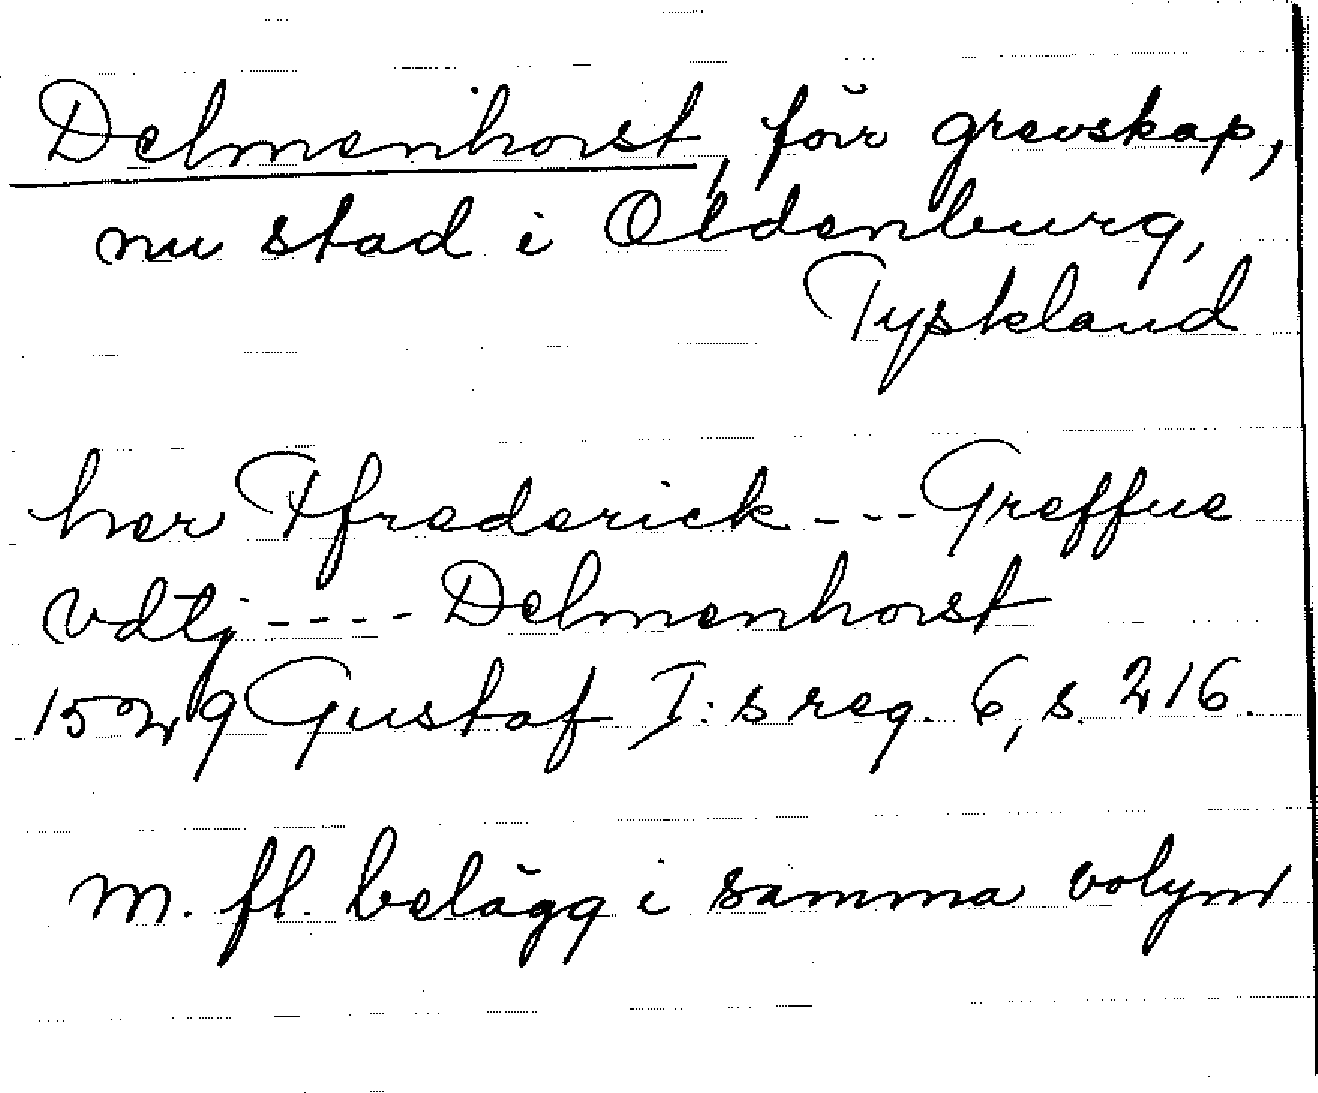 Delmenhorst, förr grevskap,
nu stad i Oldenburg,
Tyskland
her Ffrederick --- Greffue
vdtj ---- Delmenhorst
1529 Gustaf I:s reg. 6, s. 216.
m. fl. belägg i samma volym